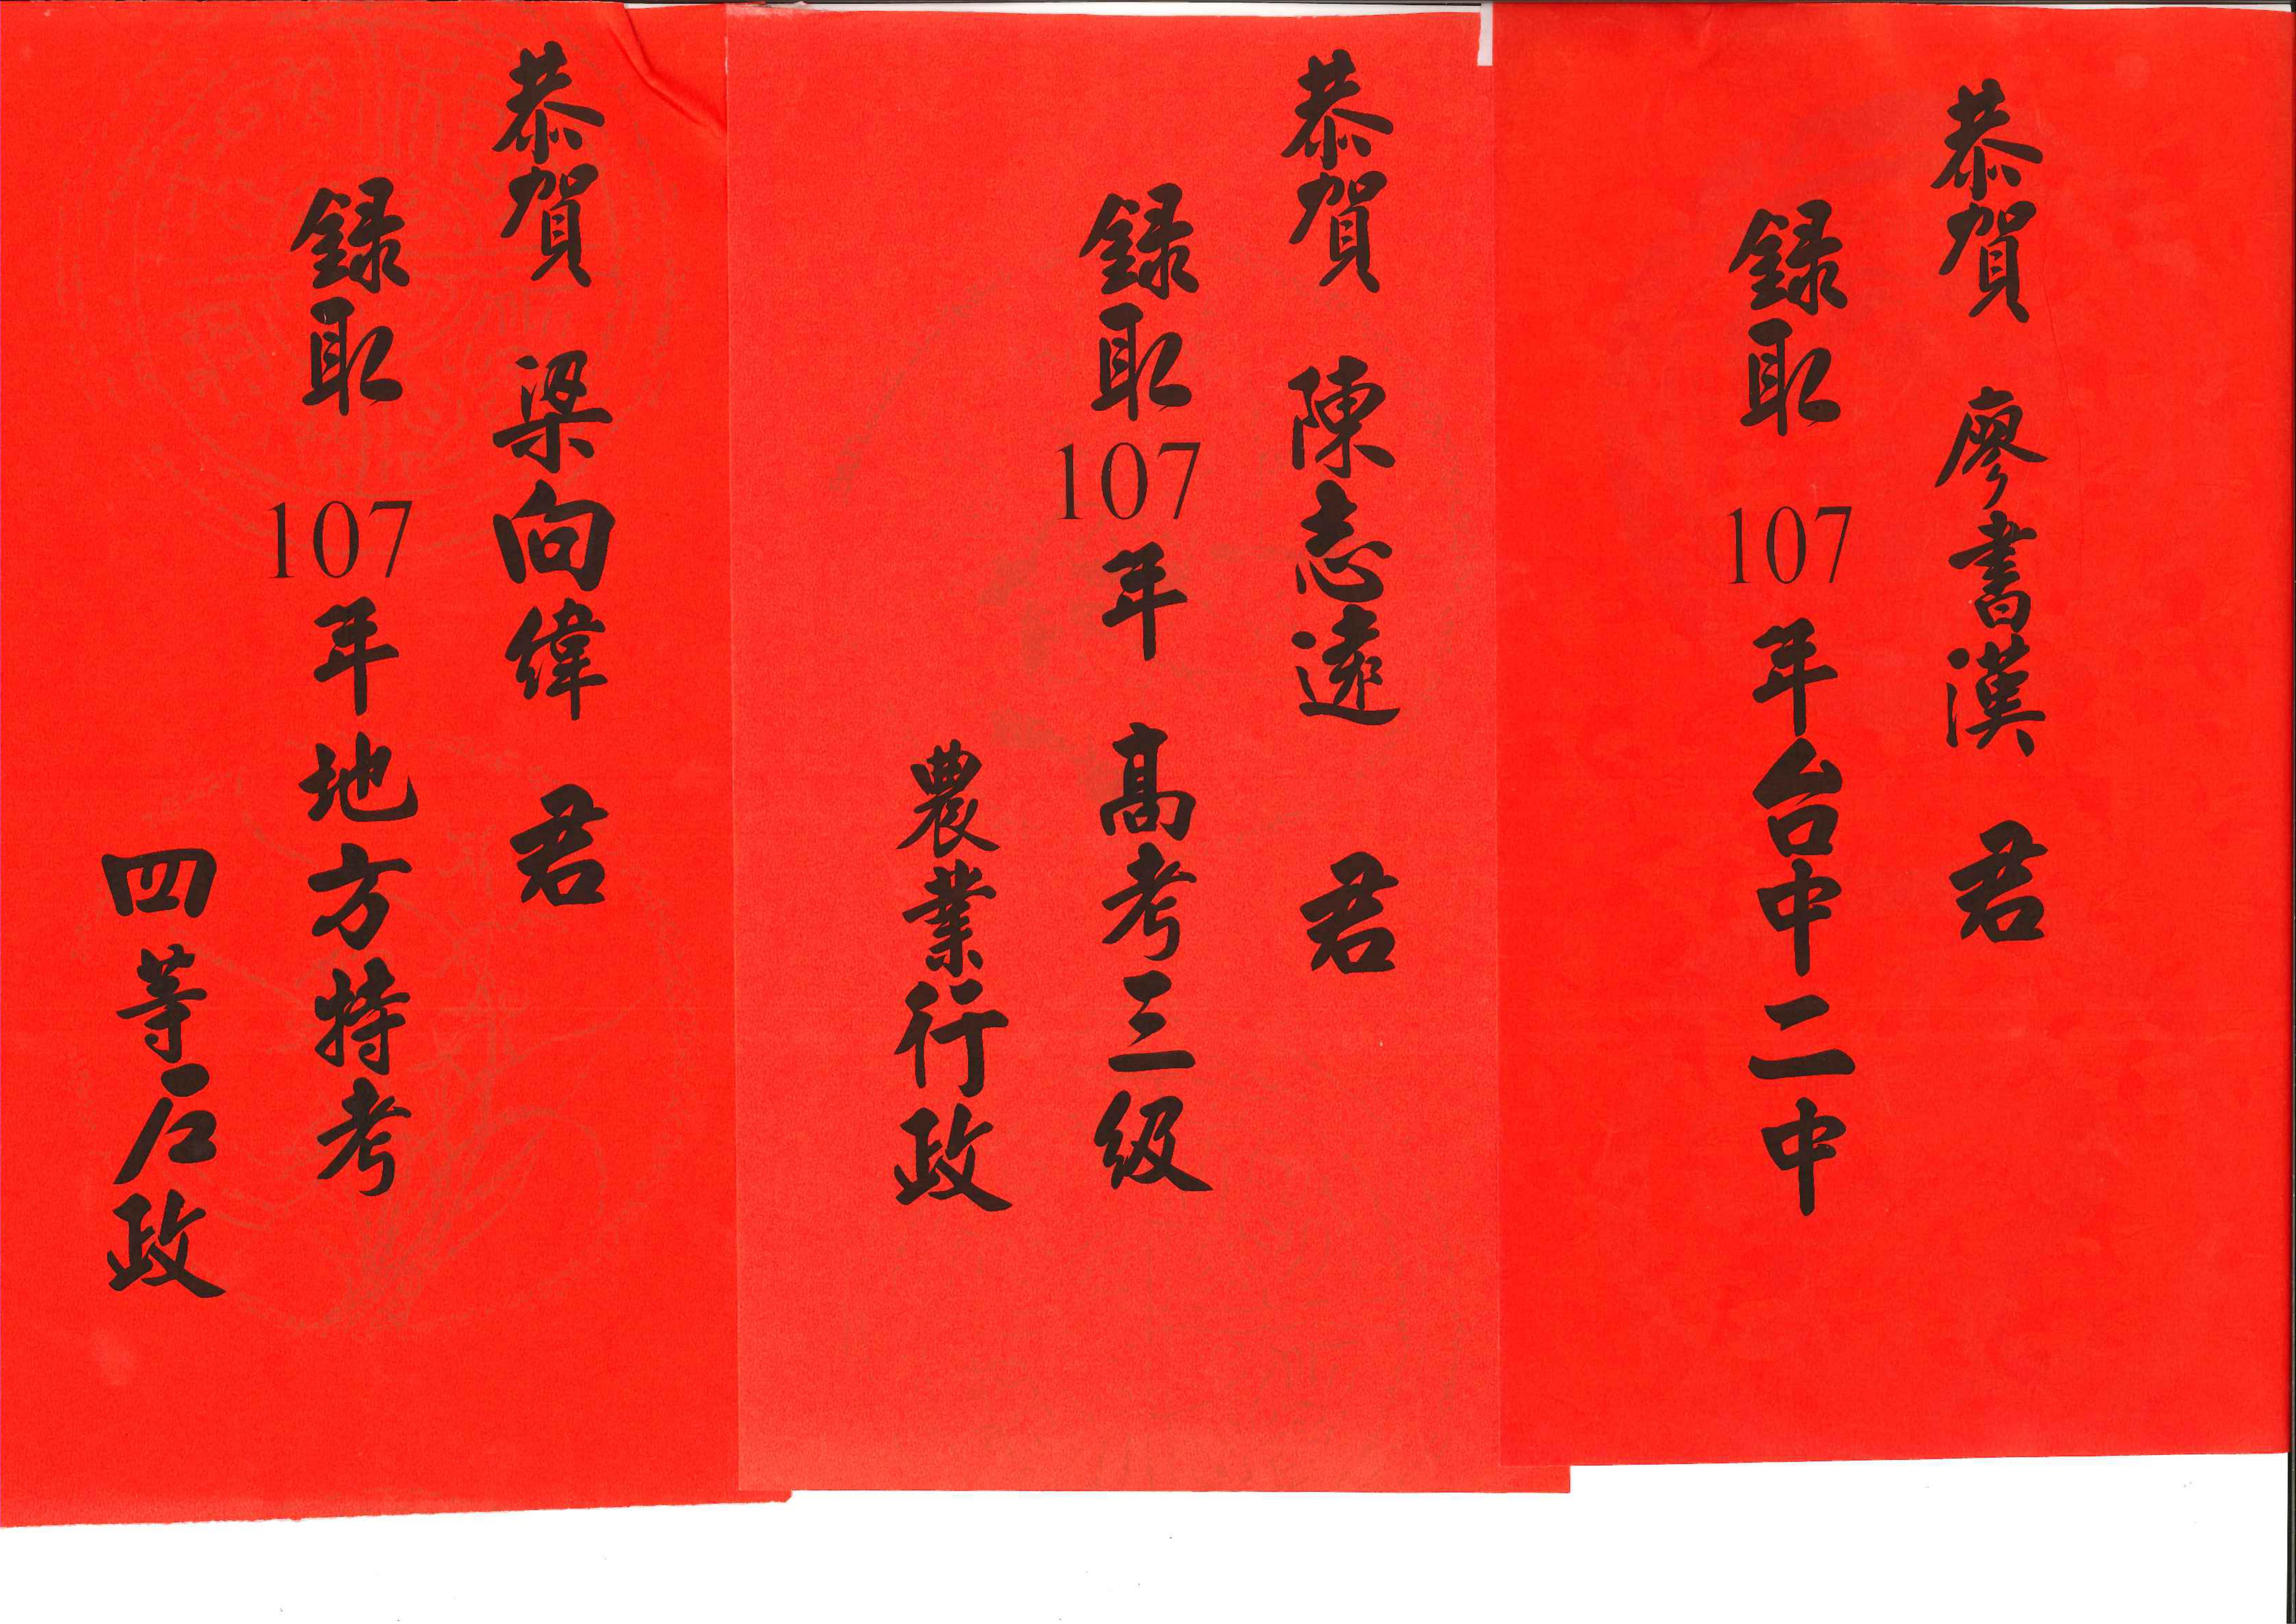 恭賀 廖書漢 君
錄取 107 年台中二中
恭賀 陳志遠 君
錄取 107 年 高考三級
農業行政
恭賀 梁向緯 君
錄取 107 年地方特考
四等戶政